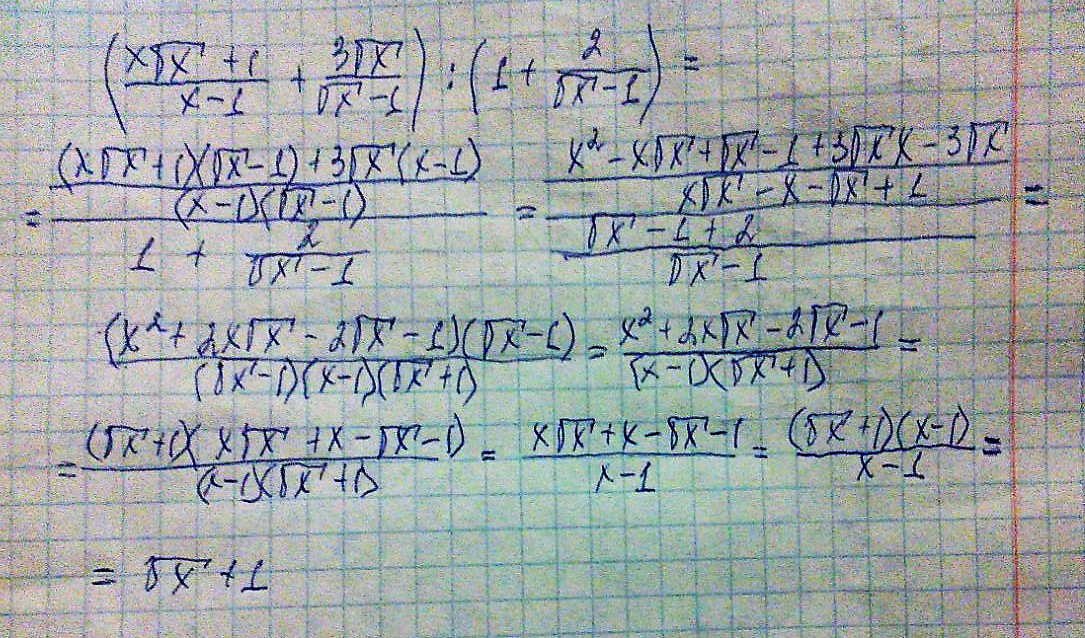 ((x√x + 1)/(x - 1) + 3√x/(√x - 1)) : (1 + 2/(√x - 1)) =
= ((x√x + 1)(√x - 1) + 3√x(x - 1))/((x - 1)(√x - 1)) / (1 + 2/(√x - 1)) = (x² - x√x + √x - 1 + 3√x x - 3√x)/(x√x - x - √x + 1) / ((√x - 1 + 2)/(√x - 1)) =
(x² + 2x√x - 2√x - 1)(√x - 1)/((√x - 1)(x - 1)(√x + 1)) = (x² + 2x√x - 2√x - 1)/((x - 1)(√x + 1)) =
= (√x + 1)(x√x + x - √x - 1)/((x - 1)(√x + 1)) = (x√x + x - √x - 1)/(x - 1) = (√x + 1)(x - 1)/(x - 1) =
= √x + 1